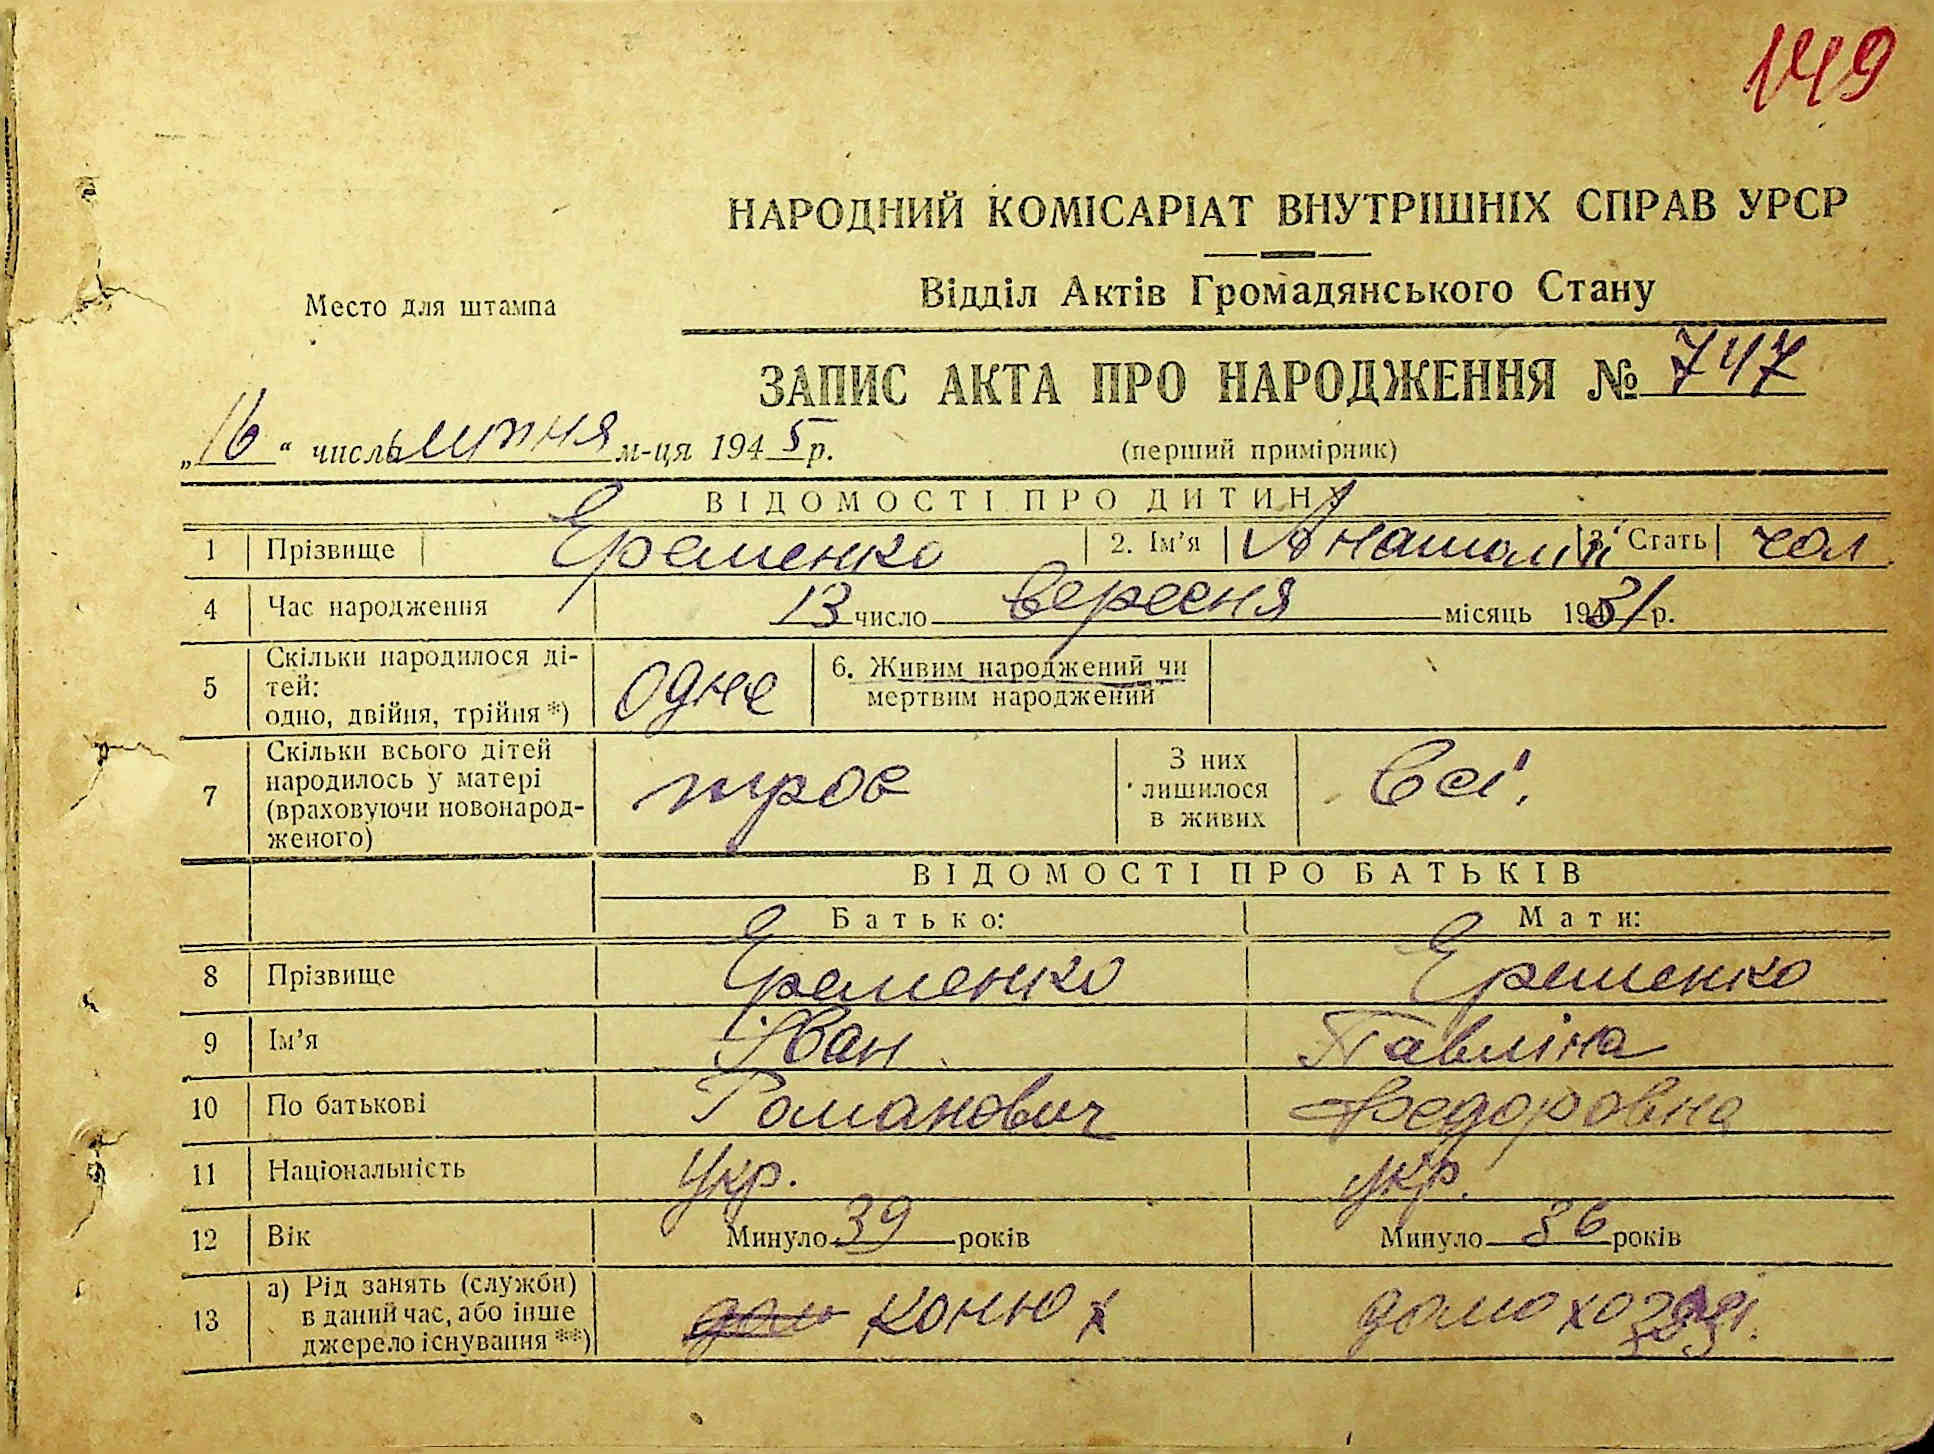 149
НАРОДНИЙ КОМІСАРІАТ ВНУТРІШНІХ СПРАВ УРСР
Відділ Актів Громадянського Стану
Место для штампа
ЗАПИС АКТА ПРО НАРОДЖЕННЯ № 747
„16“ числа липня м-ця 1945 р.
(перший примірник)
ВІДОМОСТІ ПРО ДИТИНУ
1 Прізвище Єременко 2. Ім'я Анатолій 3. Стать чол
4 Час народження 13 число вересня місяць 1931 р.
5 Скільки народилося ді-
тей:
одно, двійня, трійня *) одне
6. Живим народжений чи
мертвим народжений
7 Скільки всього дітей
народилось у матері
(враховуючи новонарод-
женого) троє
З них
лишилося
в живих Всі.
ВІДОМОСТІ ПРО БАТЬКІВ
Батько: Мати:
8 Прізвище Єременко Єременко
9 Ім'я Іван Павліна
10 По батькові Романович Федоровна
11 Національність Укр. укр.
12 Вік Минуло 39 років Минуло 36 років
13 а) Рід занять (служби)
в даний час, або інше
джерело існування **) дом конюх домохозяі.